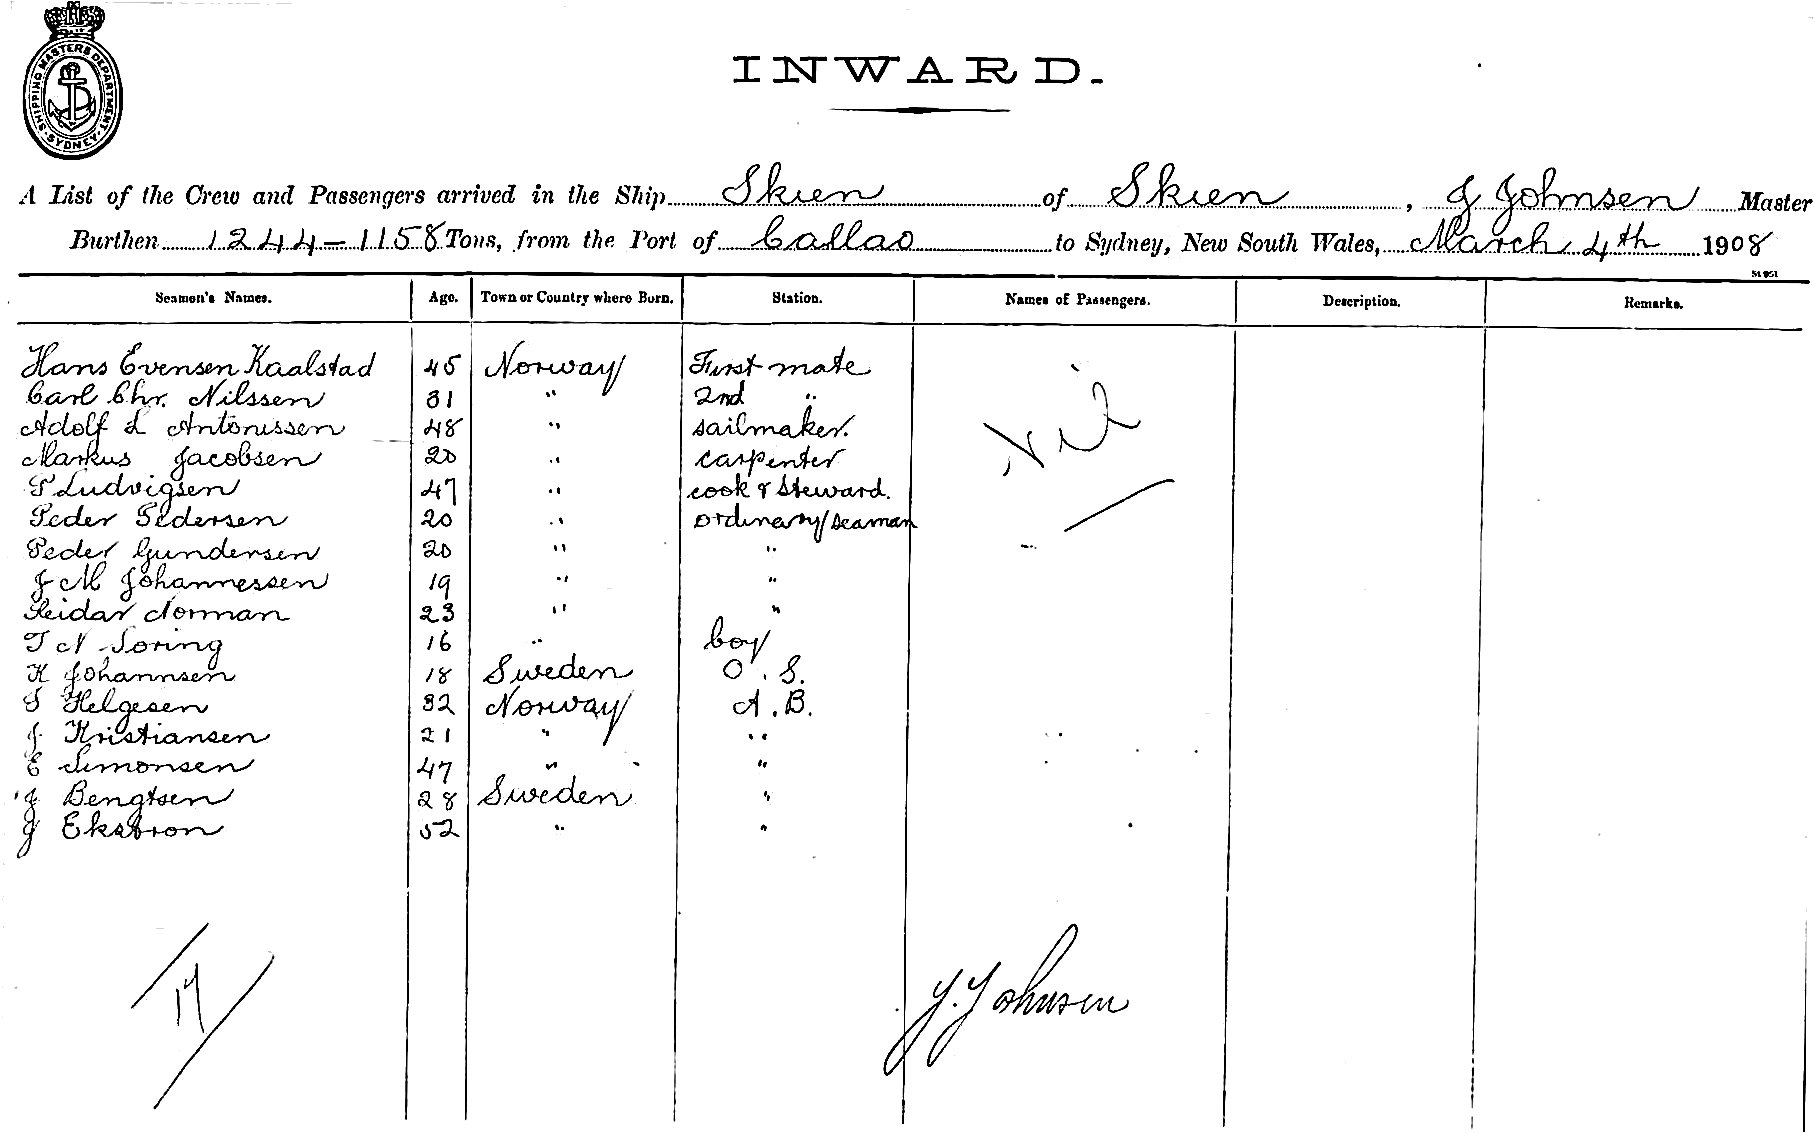 SHIPPING MASTERS DEPARTMENT. SYDNEY.
INWARD.
A List of the Crew and Passengers arrived in the Ship Skien of Skien, J Johnsen Master
Burthen 1244-1158 Tons, from the Port of Callao to Sydney, New South Wales, March 4th 1908
Seamen's Names. Age. Town or Country where Born. Station. Names of Passengers. Description. Remarks.
Hans Evensen Kaalstad 45 Norway First mate
Carl Chr. Nilssen 31 " 2nd "
Adolf L Antonissen 48 " sailmaker.
Markus Jacobsen 20 " carpenter
Nil
P Ludvigsen 47 " cook & steward.
Peder Pedersen 20 " ordinary seaman
Peder Gundersen 20 " "
J M Johannessen 19 " "
Reidar Norman 23 " "
T N Soring 16 " boy
K Johannsen 18 Sweden O. S.
S Helgesen 32 Norway A. B.
J Kristiansen 21 " "
E Simonsen 47 " "
J Bengtsen 28 Sweden "
J Ekstron 52 " "
17
J. Johnsen